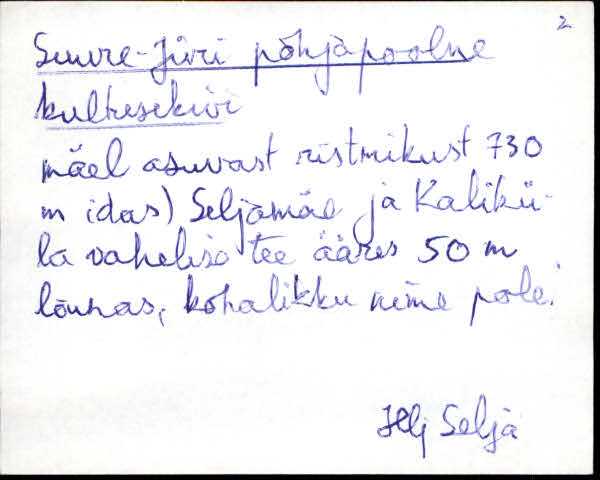 2
Suure-Jüri põhjapoolne
kultusekivi
mäel asuvast ristmikust 730
m idas) Seljamäe ja Kalikü-
la vahelise tee ääres 50 m
lõunas, kohalikku nime pole.
Selja